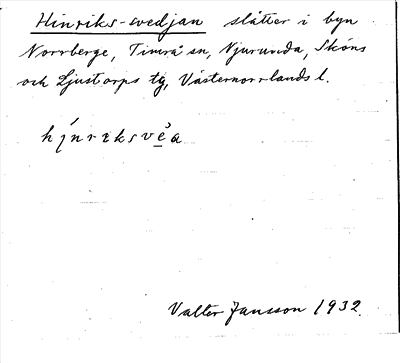 Hinriks-svedjan slåtter i byn
Norrberge, Timrå sn, Njurunda, Sköns
och Ljustorps tg, Västernorrlands l.
hinriksvea
Valter Jansson 1932.